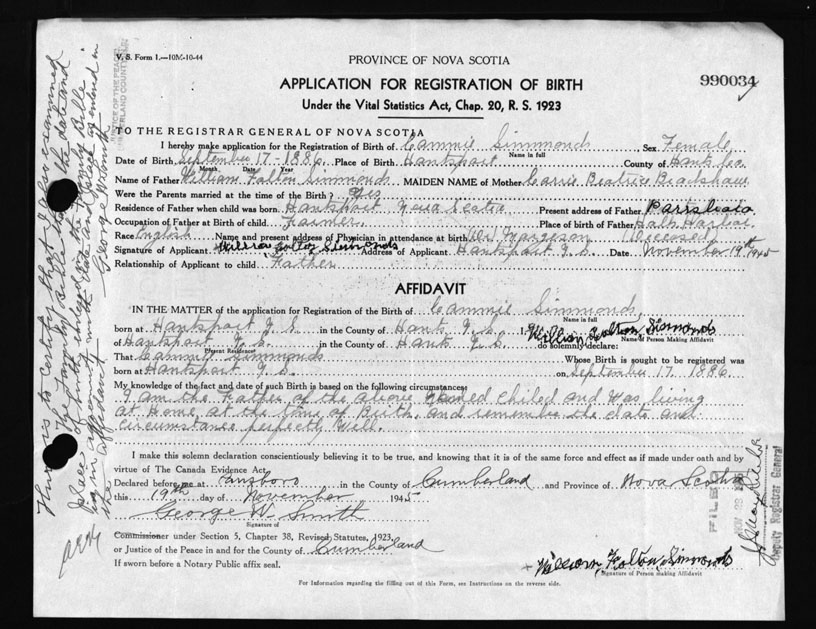 V. S. Form 1.—10M-10-44
PROVINCE OF NOVA SCOTIA
990034
APPLICATION FOR REGISTRATION OF BIRTH
Under the Vital Statistics Act, Chap. 20, R. S. 1923
TO THE REGISTRAR GENERAL OF NOVA SCOTIA
I hereby make application for the Registration of Birth of Cammie Simmonds Sex Female
Name in full
Date of Birth September 17 - 1886 Place of Birth Hantsport County of Hants Co
Month Date Year
Name of Father William Falton Simmonds MAIDEN NAME of Mother Carrie Beatrice Bradshaw
Were the Parents married at the time of the Birth? Yes
Residence of Father when child was born. Hantsport Nova Scotia Present address of Father
Occupation of Father at Birth of child. Farmer Place of birth of Father
Race English Name and present address of Physician in attendance at birth Dr Margeson (Deceased)
Signature of Applicant William Falton Simmonds Address of Applicant Hantsport N. S. Date November 19th 1945
Relationship of Applicant to child Father
AFFIDAVIT
IN THE MATTER of the application for Registration of the Birth of Cammie Simmonds
Name in full
born at Hantsport N S in the County of Hants N. S. I, William Falton Simmonds
Name of Person Making Affidavit
of Hantsport N. S. in the County of Hants N. S. do solemnly declare:
Present Residence
That Cammie Simmonds Whose Birth is sought to be registered was
born at Hantsport N S. on September 17 1886
My knowledge of the fact and date of such Birth is based on the following circumstances:
I am the Father of the above Named Chiled and was living
at Home at the time of Birth, and remember the date and
circumstance perfectly well.
I make this solemn declaration conscientiously believing it to be true, and knowing that it is of the same force and effect as if made under oath and by
virtue of The Canada Evidence Act.
Declared before me at in the County of Cumberland and Province of Nova Scotia
this 19th day of November 1945
George W. Smith
Signature of
Commissioner under Section 5, Chapter 38, Revised Statutes, 1923,
or Justice of the Peace in and for the County of Cumberland
If sworn before a Notary Public affix seal.
William Falton Simmonds
Signature of Person making Affidavit
For Information regarding the filling out of this Form, see Instructions on the reverse side.
This is to certify that I have examined
the Family Bible
date and place as entered in
the affidavit.
George W Smith
JUSTICE OF THE PEACE
CUMBERLAND COUNTY
Deputy Registrar General